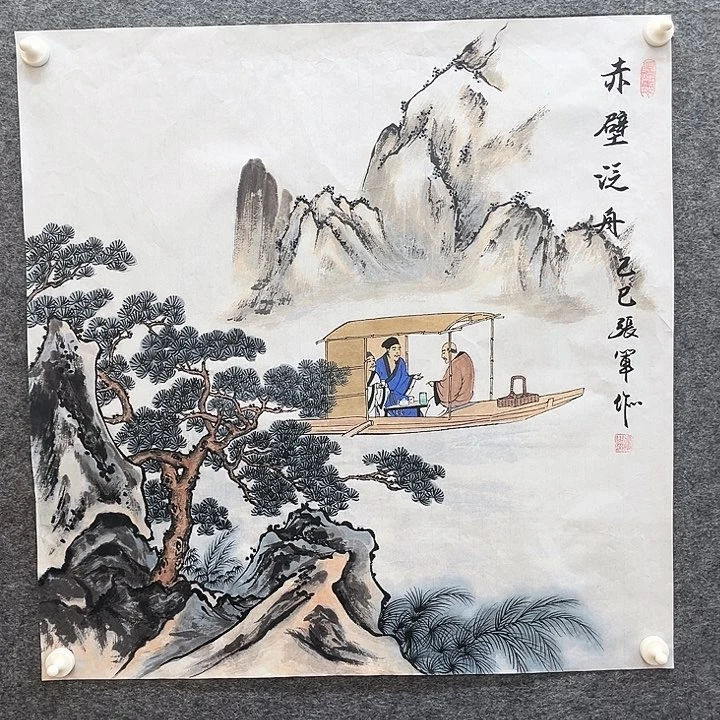 赤壁泛舟 己巳張軍作